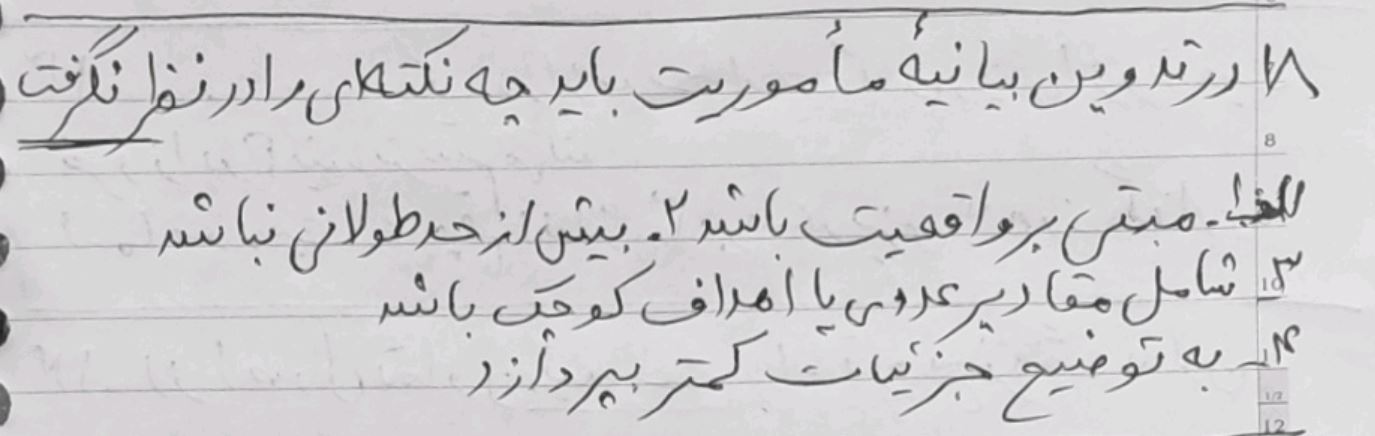 ۸) در تدوین بیانیهٔ مأموریت باید چه نکته‌ای را در نظر نگرفت
8
۱. مبتنی بر واقعیت باشد ۲. بیش از حد طولانی نباشد
۳. شامل مقادیر عددی یا اهداف کوچک باشد
10
۴. به توضیح جزئیات کمتر بپردازد
12